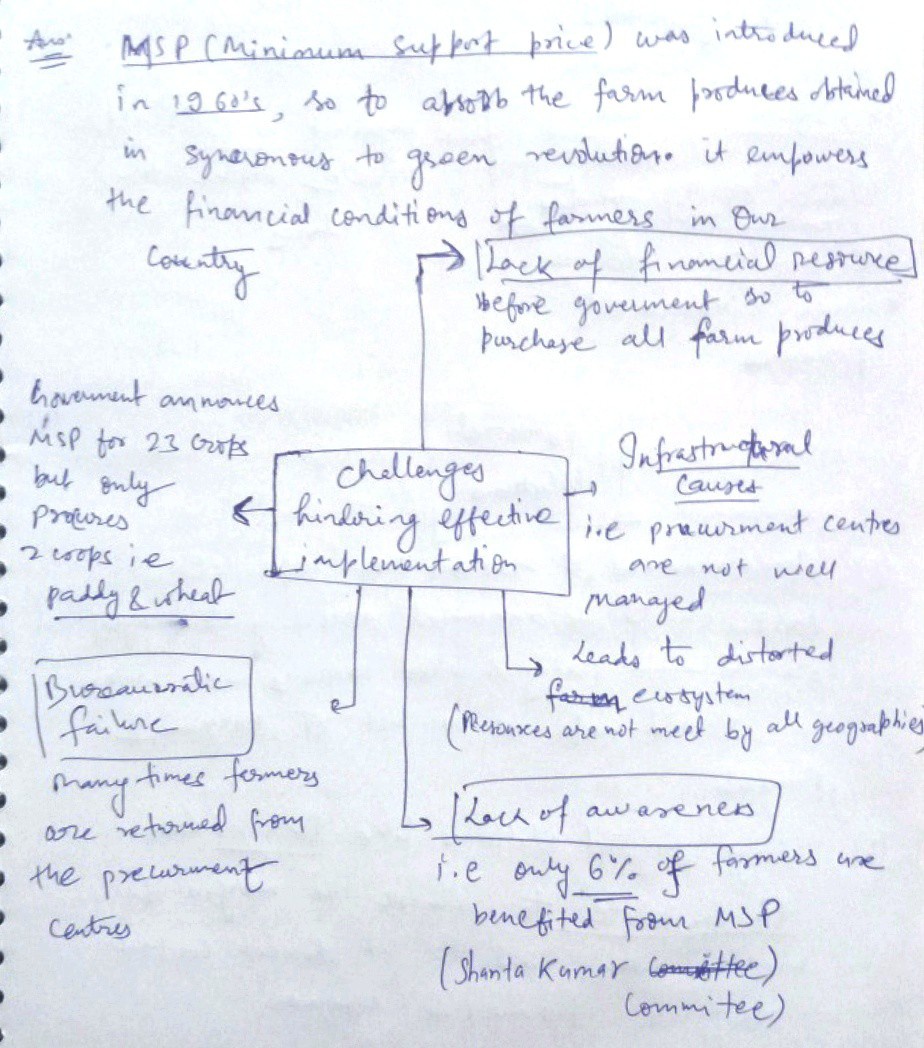 Ans:
MSP (Minimum support price) was introduced
in 1960's, so to absorb the farm produces obtained
in syncronous to green revolution. it empowers
the financial conditions of farmers in our
Country
Lack of financial resource
before goverment so to
purchase all farm produces
Goverment annonces
MSP for 23 Crops
but only
procures
2 crops i.e
paddy & wheat
Challenges
hindering effective
implementation
Infrastructural
Causes
i.e procurment centres
are not well
managed
Leads to distorted
farm ecosystem
(Resources are not meet by all geographies
Bureaucratic
failure
many times farmers
are returned from
the procurment
Centres
Lack of awareness
i.e only 6% of farmers are
benefited from MSP
(Shanta Kumar Committee)
Commitee)